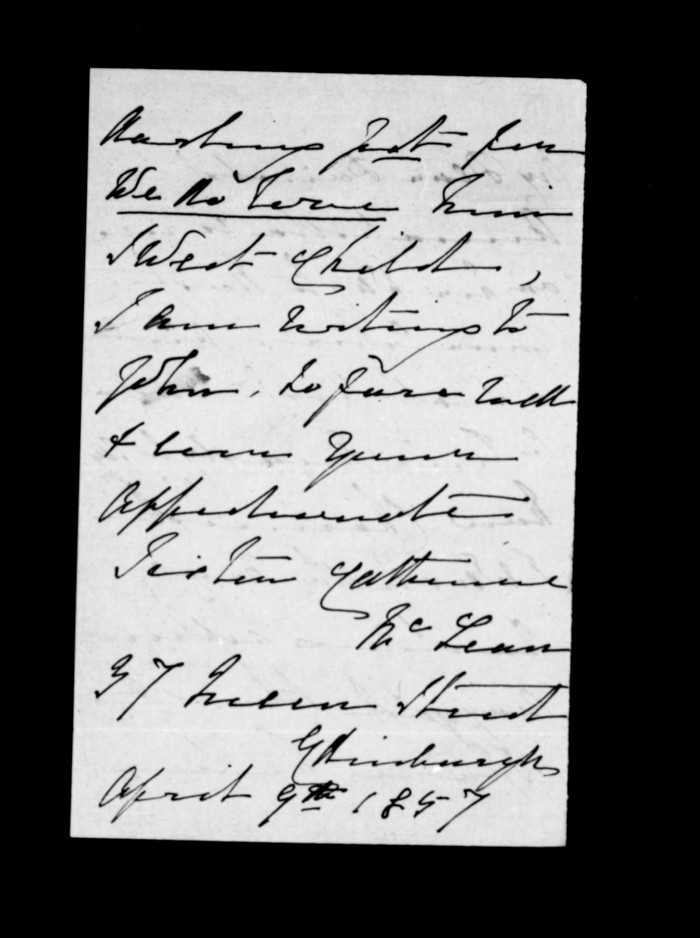 We do love him
Sweet Child,
I am writing to
John. So farewell
& ever your
Affectionate
Sister Catherine
McLean
37 Queen Street
Edinburgh
April 9th 1857